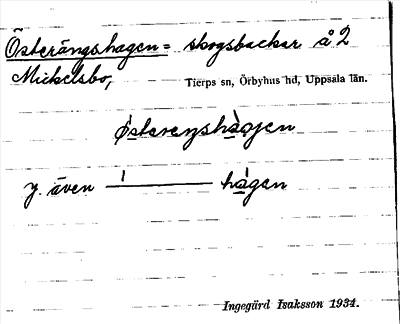 Österängshagen = skogsbackar å 2
Mickelsbo, Tierps sn, Örbyhus hd, Uppsala län.
østerenshàgen
y. även hàgen
Ingegärd Isaksson 1934.